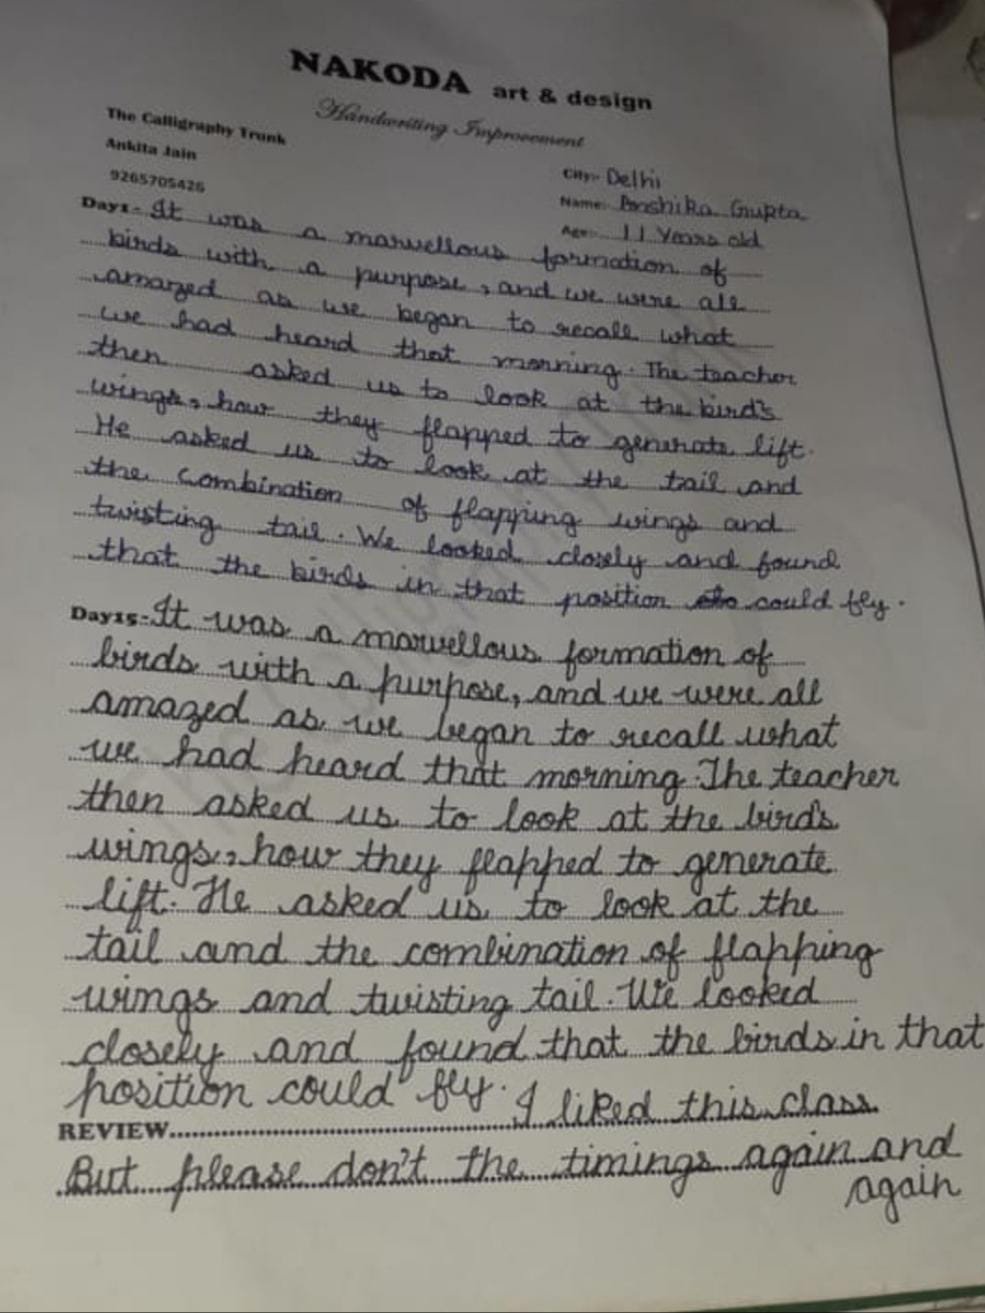 NAKODA art & design
Handwriting Improvement
The Calligraphy Trunk
Ankita Jain
9265705426
City:- Delhi
Name:- Anshika Gupta
Age:- 11 Years old
Day1- It was a marvellous formation of
birds with a purpose, and we were all
amazed as we began to recall what
we had heard that morning. The teacher
then asked us to look at the bird's
wings, how they flapped to generate lift.
He asked us to look at the tail and
the combination of flapping wings and
twisting tail. We looked closely and found
that the birds in that position could fly.
Day15- It was a marvellous formation of
birds with a purpose, and we were all
amazed as we began to recall what
we had heard that morning. The teacher
then asked us to look at the bird's
wings, how they flapped to generate
lift. He asked us to look at the
tail and the combination of flapping
wings and twisting tail. We looked
closely and found that the birds in that
position could fly.
REVIEW.......... I liked this class
But please don't the timings again and
again